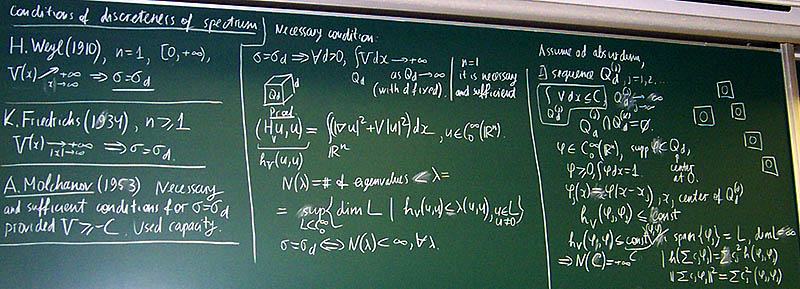 Conditions of discreteness of spectrum
H. Weyl (1910), n=1, [0,+∞),
V(x) → +∞ |x|→∞ ⇒ σ=σ_d
K. Friedrichs (1934), n≥1
V(x) → +∞ |x|→∞ ⇒ σ=σ_d.
A. Molchanov (1953) Necessary
and sufficient conditions for σ=σ_d
provided V≥-C. Used capacity.
Necessary condition:
σ=σ_d ⇒ ∀d>0, ∫_{Q_d} V dx → +∞
as Q_d → ∞
(with d fixed).
n=1
it is necessary
and sufficient
Q_d d
Proof
(Hu,u) = ∫_{ℝⁿ} (|∇u|²+V|u|²) dx, u∈C₀^∞(ℝⁿ).
h_V(u,u)
N(λ) = # of eigenvalues < λ =
= sup_{L⊂C₀^∞} {dim L | h_V(u,u) ≤ λ(u,u), u∈L, u≠0}
σ=σ_d ⇔ N(λ)<∞, ∀λ.
Assume ad absurdum,
∃ sequence Q_d^{(j)}, j=1,2...
∫_{Q_d^{(j)}} V dx ≤ C, Q_d^{(j)} → ∞
Q_d^{(i)} ∩ Q_d^{(j)} = ∅.
φ∈C₀^∞(ℝⁿ), supp φ⊂Q_d,
center at 0.
φ≥0, ∫φ dx=1
φ_j(x)=φ(x-x_j), x_j center of Q_d^{(j)}
h_V(φ_j,φ_j) ≤ const
h_V(φ_j,φ_j) ≤ const span{φ_j} = L, dim L=∞
⇒ N(C)=+∞
h(Σc_jφ_j)=Σc_j² h(φ_j,φ_j)
||Σc_jφ_j||²=Σc_j²(φ_j,φ_j)